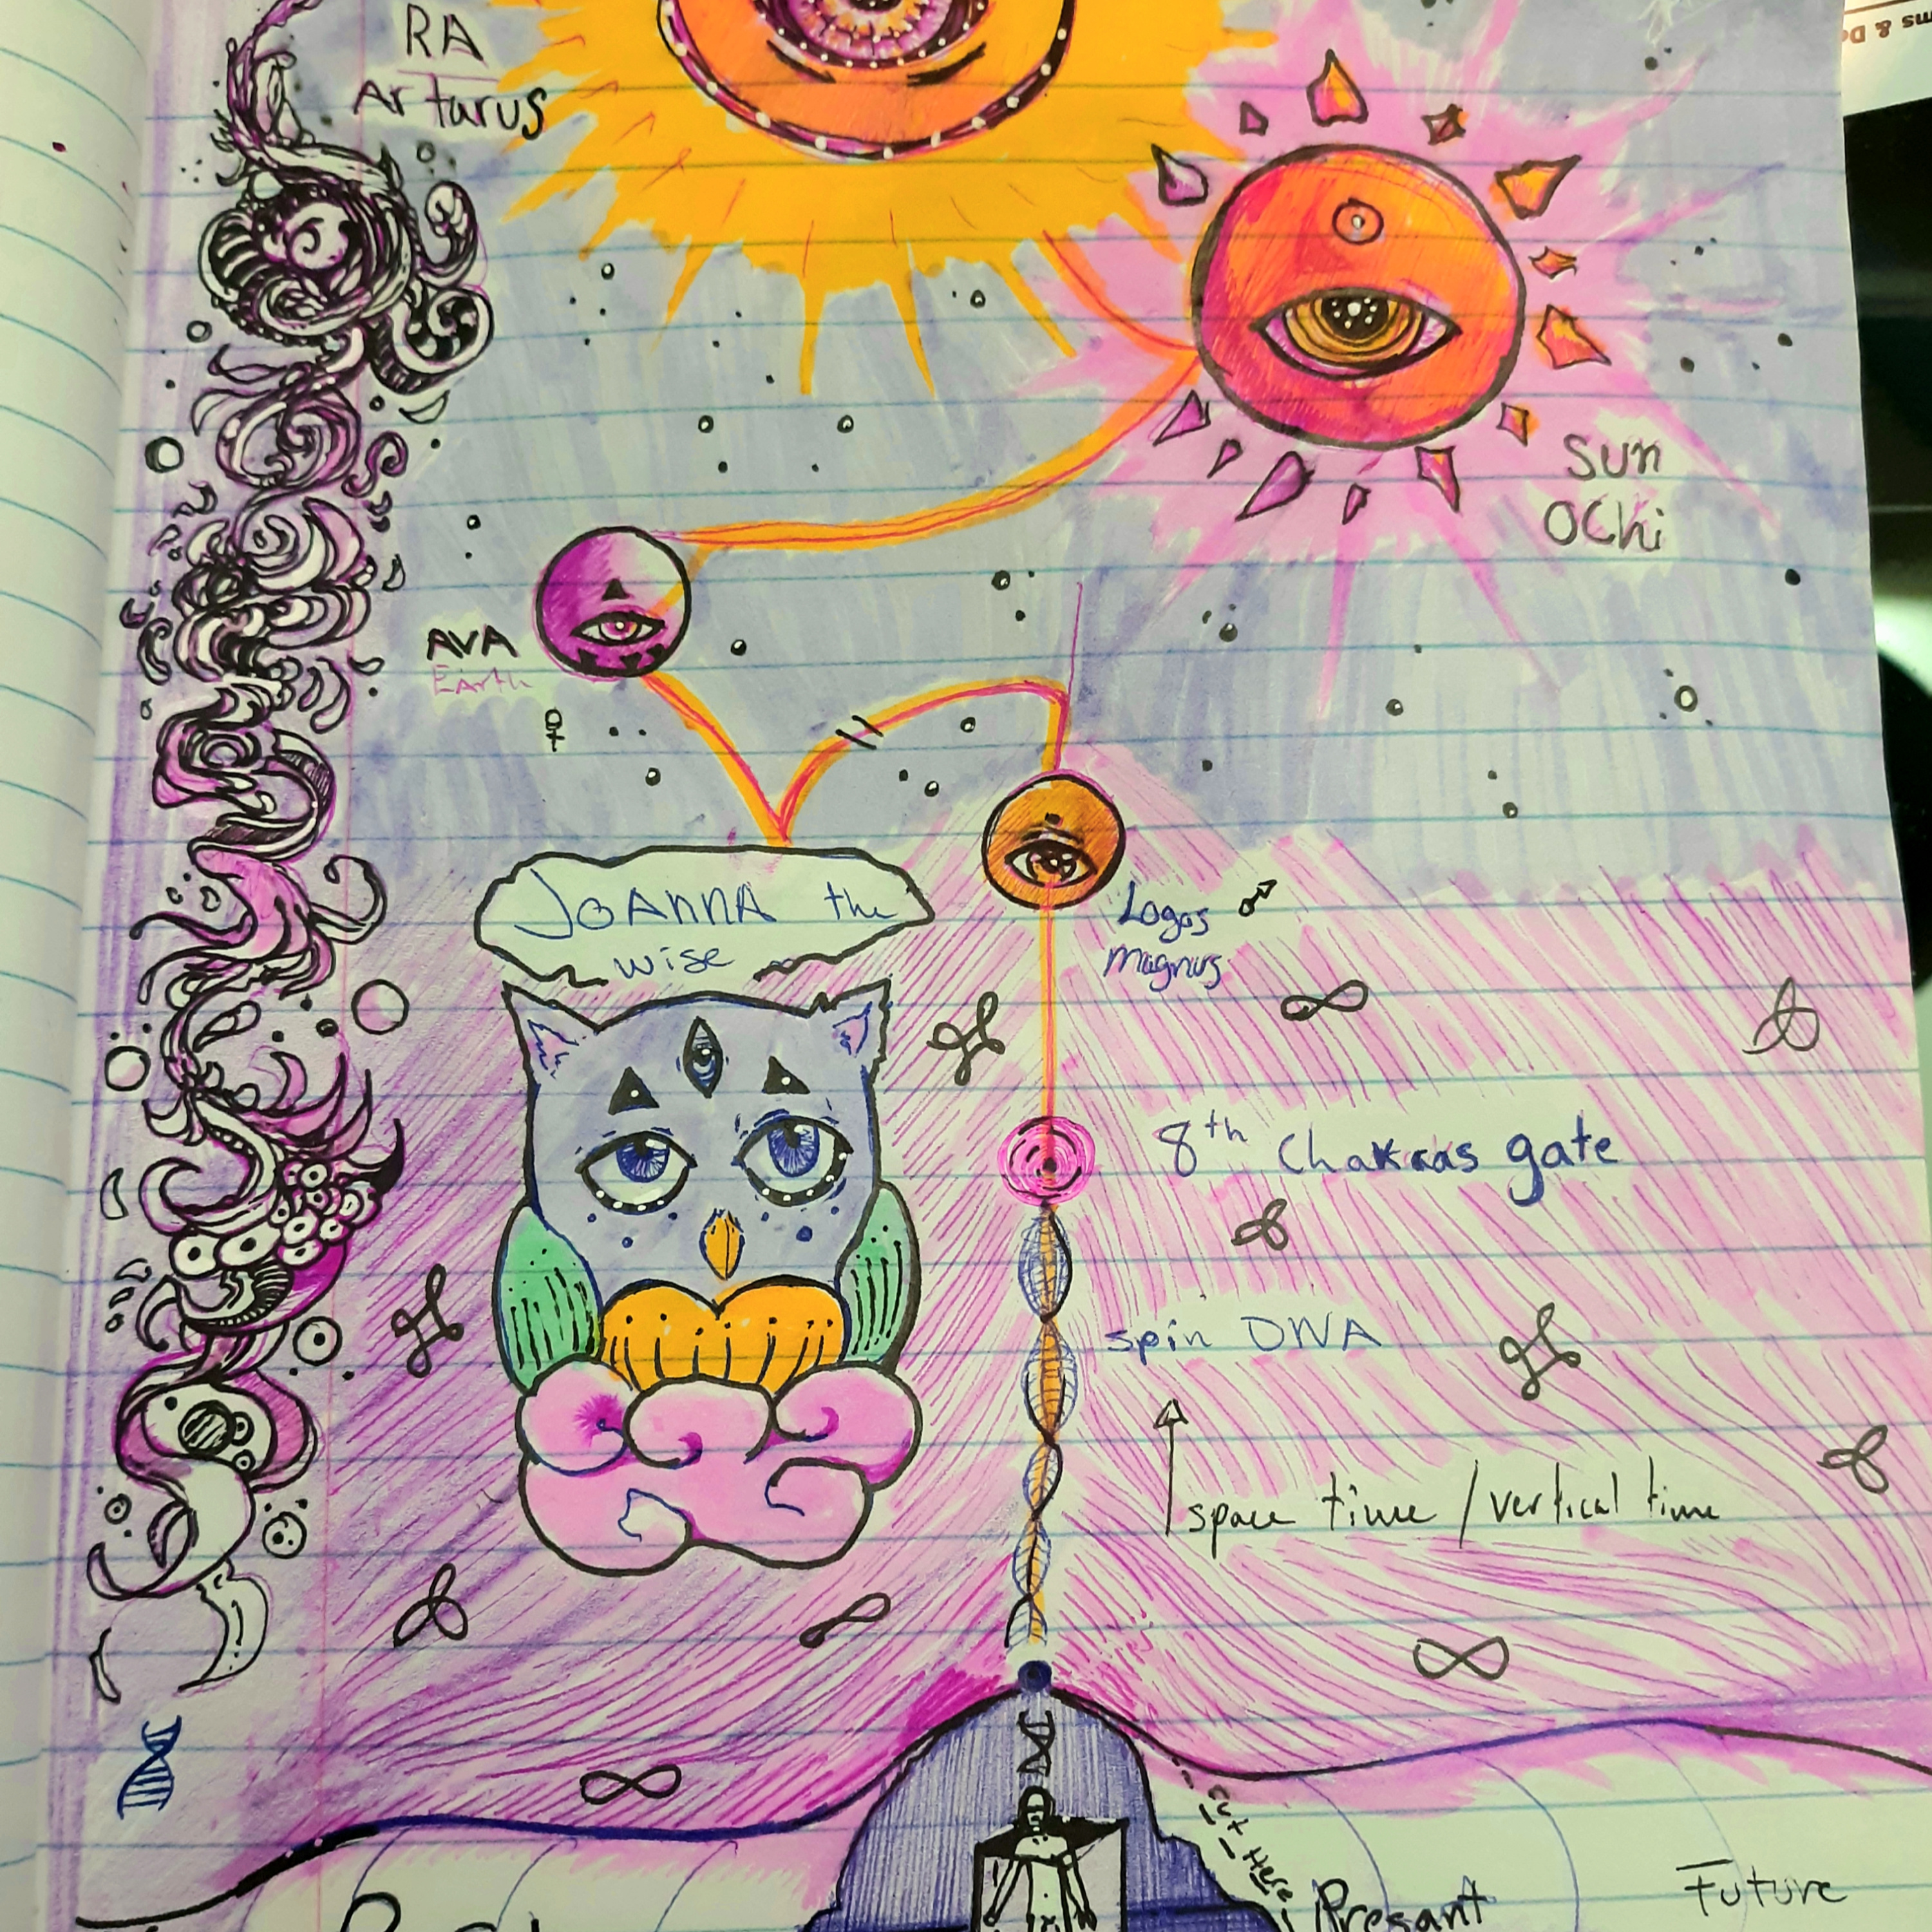 RA
Artarus
Sun
OChi
AVA
Earth
JoAnnA the
wise
Logos
Magnus
8th Chakras gate
spin DNA
space time / vertical time
Cut Here
Presant
Future